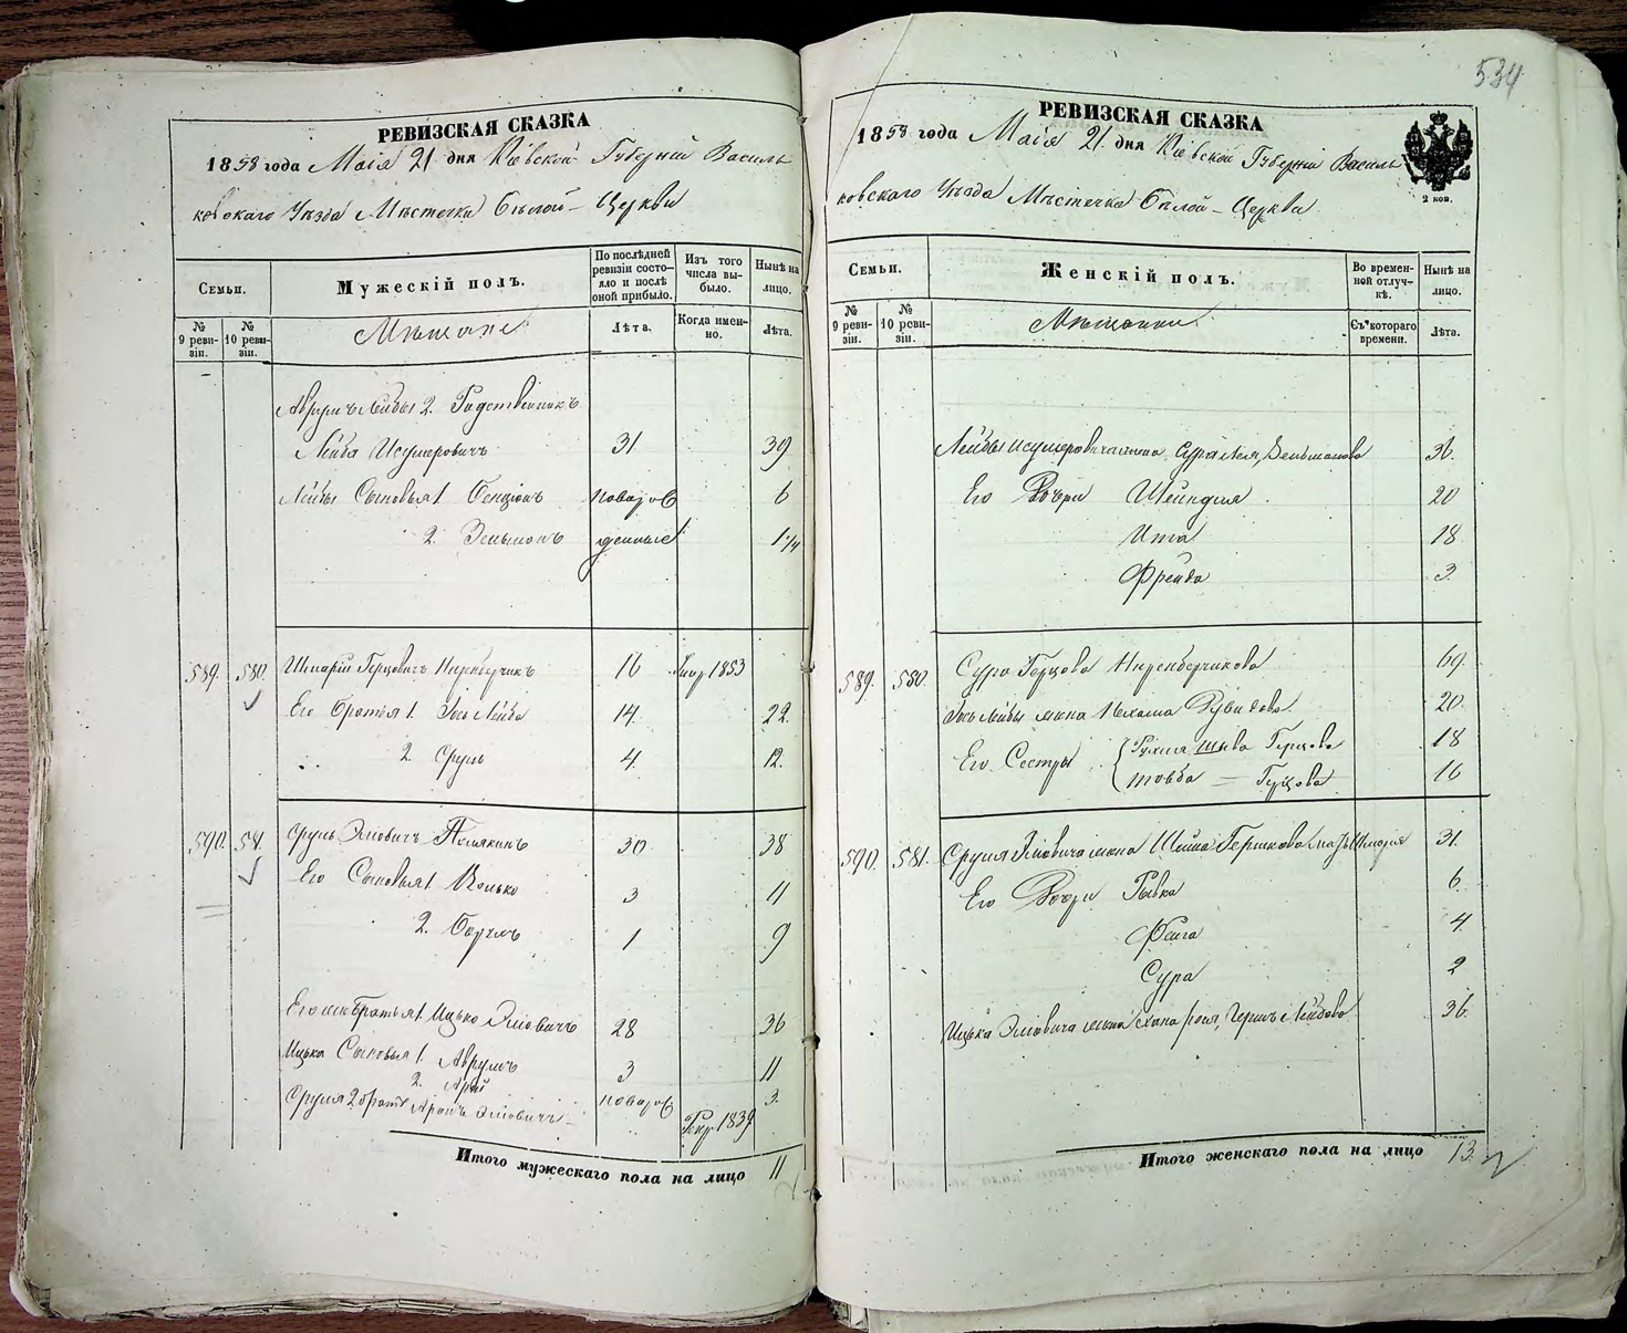 РЕВИЗСКАЯ СКАЗКА
1858 года Маія 21 дня Кіевской Губерніи Василь
ковскаго Уѣзда Мѣстечка Бѣлой-Церкви
Семьи.
Мужескій полъ.
По послѣдней ревизіи состо-
яло и послѣ
оной прибыло.
Изъ того
числа вы-
было.
Нынѣ на
лицо.
№
9 реви-
зіи.
№
10 реви-
зіи.
Мѣщане
Лѣта.
Когда имен-
но.
Лѣта.
Лейбы 2. Родственникъ
Лейба 31 39
Лейбы Сыновья 1. Бенціонъ новорож 6
2. Зельманъ денные 1 1/4
589. 580. Шмарій Герцовичъ 16 1853
Его Братья 1. Лейба 14. 22.
2. Сруль 4. 12.
590. 581. Сруль Эліовичъ 30 38
Его Сыновья 1. Волько 3 11
2. 1 9
Его же Братья 1. Ицько Эліовичъ 28 36
Ицька Сыновья 1. Аврумъ 3 11
2. новорож 3.
Сруля 2 братъ Аронъ Эліовичъ 1839
Итого мужескаго пола на лицо 11
534
РЕВИЗСКАЯ СКАЗКА
1858 года Маія 21. дня Кіевской Губерніи Василь
ковскаго Уѣзда Мѣстечка Бѣлой-Церкви
2 коп.
Семьи.
Женскій полъ.
Во времен-
ной отлуч-
кѣ.
Нынѣ на
лицо.
№
9 реви-
зіи.
№
10 реви-
зіи.
Мѣщанки
Съ котораго
времени.
Лѣта.
Лейбы жена Сура Зельманова 36.
Его Дочери Шейндля 20
Ита 18
Фрейда 3
589. 580. Сура Герцова 69.
Лейбы жена 20.
Его Сестры Герцова 18
Товба — Герцова 16
590. 581. Сруля Эліовича жена Гершкова 31.
Его Дочери Рывка 6.
Фейга 4
Сура 2
Ицька Эліовича жена Лейбова 36.
Итого женскаго пола на лицо 13.